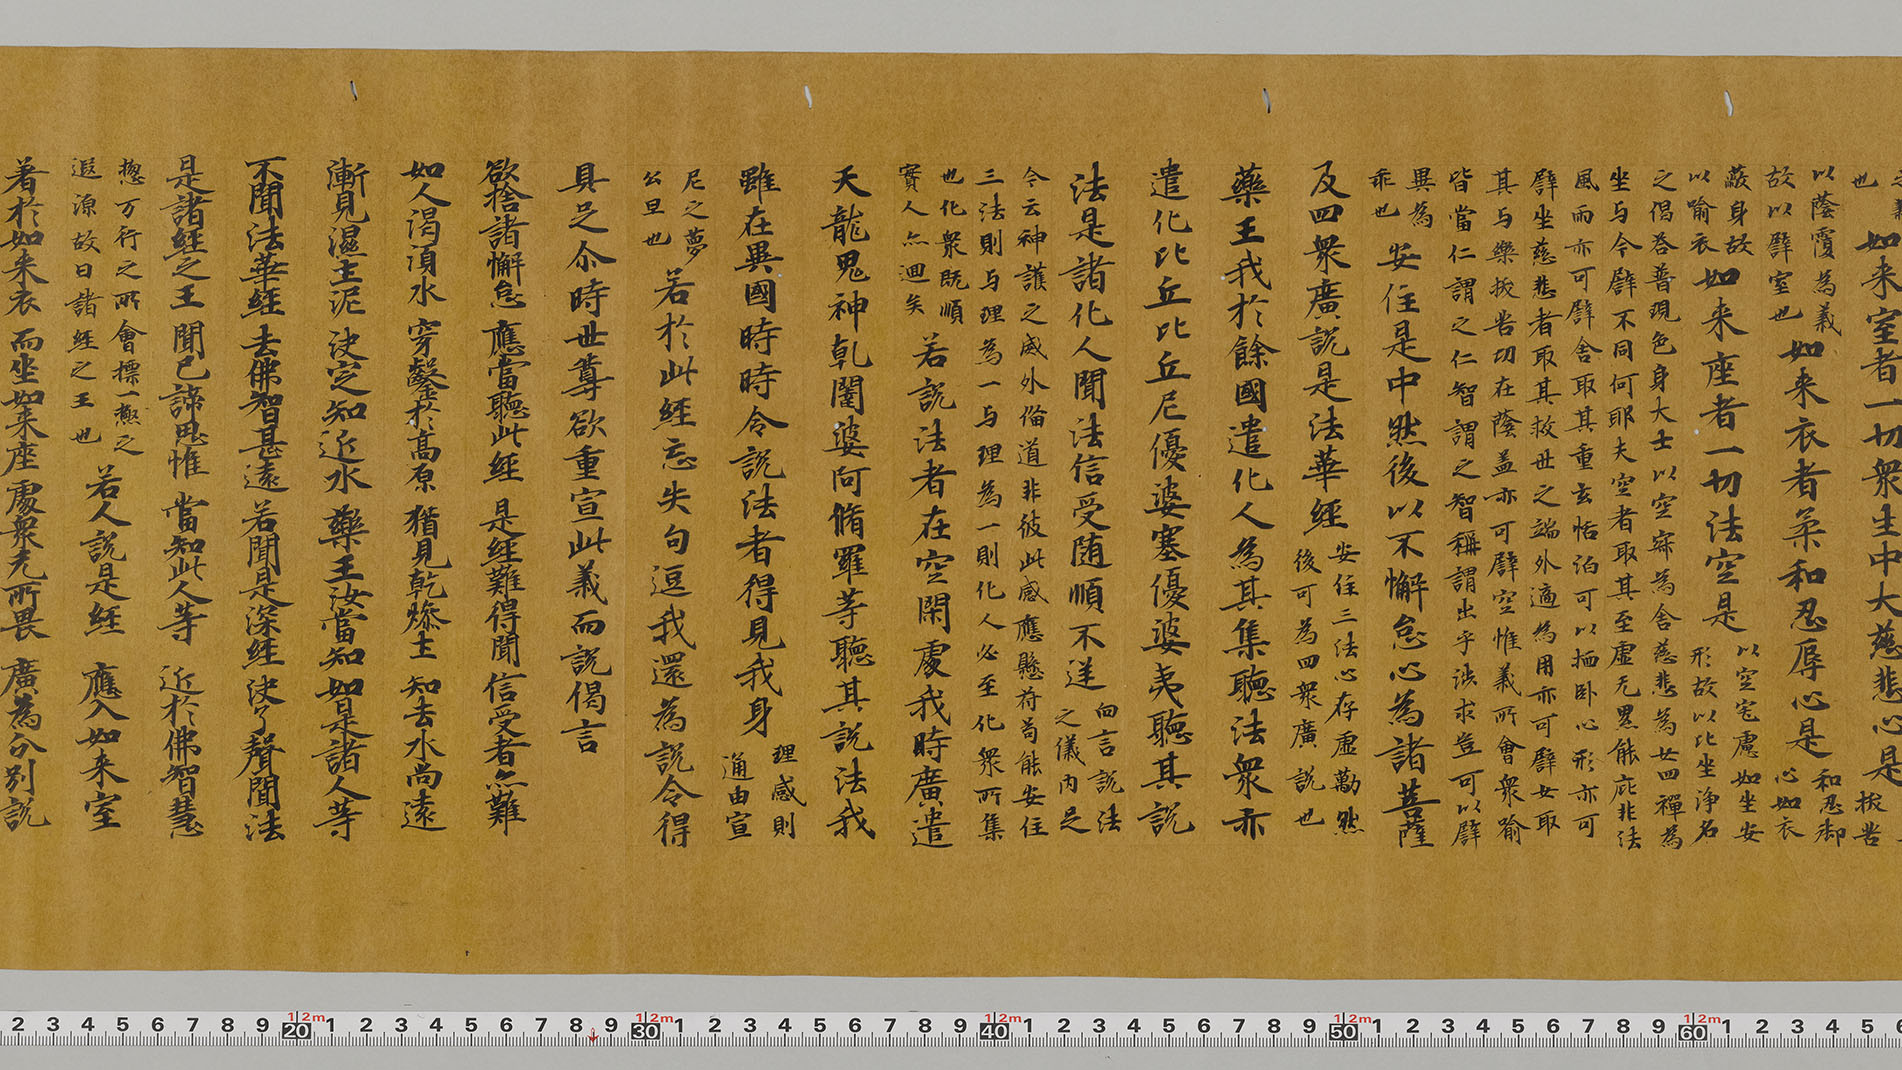 義
也
如来室者一切衆生中大慈悲心是
拔苦
以蔭覆為義
故以譬室也
如来衣者柔和忍辱心是
和忍御
心如衣
蔽身故
以喻衣
如来座者一切法空是
以空宅慮如坐安
形故以比坐淨名
之偈荅普現色身大士以空寂為舍慈悲為女四禪為
坐与今譬不同何耶夫空者取其至虚无累能庇非法
風而亦可譬舍取其重玄恬泊可以栖卧心形亦可
譬坐慈悲者取其救世之端外適為用亦可譬女取
其与樂拔苦切在蔭盖亦可譬空惟義所會衆喻
皆當仁謂之仁智謂之智稱謂出乎法求豈可以譬
異為
乖也
安住是中然後以不懈怠心為諸菩薩
及四衆廣説是法華經
安住三法心存虚勸然
後可為四衆廣説也
藥王我於餘國遣化人為其集聽法衆亦
遣化比丘比丘尼優婆塞優婆夷聽其説
法是諸化人聞法信受随順不逆
向言説法
之儀内足
今云神護之感外俻道非彼此感應懸苻苟能安住
三法則与理為一与理為一則化人必至化衆所集
也化衆既順
實人亦迴矣
若説法者在空閑處我時廣遣
天龍鬼神乾闥婆阿脩羅等聽其説法我
雖在異國時時令説法者得見我身
理感則
通由宣
尼之夢
公旦也
若於此經忘失句逗我還為説令得
具足尒時世尊欲重宣此義而説偈言
欲捨諸懈怠 應當聽此經 是經難得聞 信受者亦難
如人渴湏水 穿鑿於高原 猶見乾燥土 知去水尚遠
漸見濕土泥 决定知近水 藥王汝當知 如是諸人等
不聞法華經 去佛智甚遠 若聞是深經 决了聲聞法
是諸經之王 聞已諦思惟 當知此人等 近於佛智慧
惣万行之所會摽一極之
遐源故曰諸經之王也
若人説是經 應入如来室
著於如来衣 而坐如来座 處衆无所畏 廣為分別説
2 3 4 5 6 7 8 9 20 1 2 3 4 5 6 7 8 9 30 1 2 3 4 5 6 7 8 9 40 1 2 3 4 5 6 7 8 9 50 1 2 3 4 5 6 7 8 9 60 1 2 3 4 5
12m 12m 12m 12m 12m